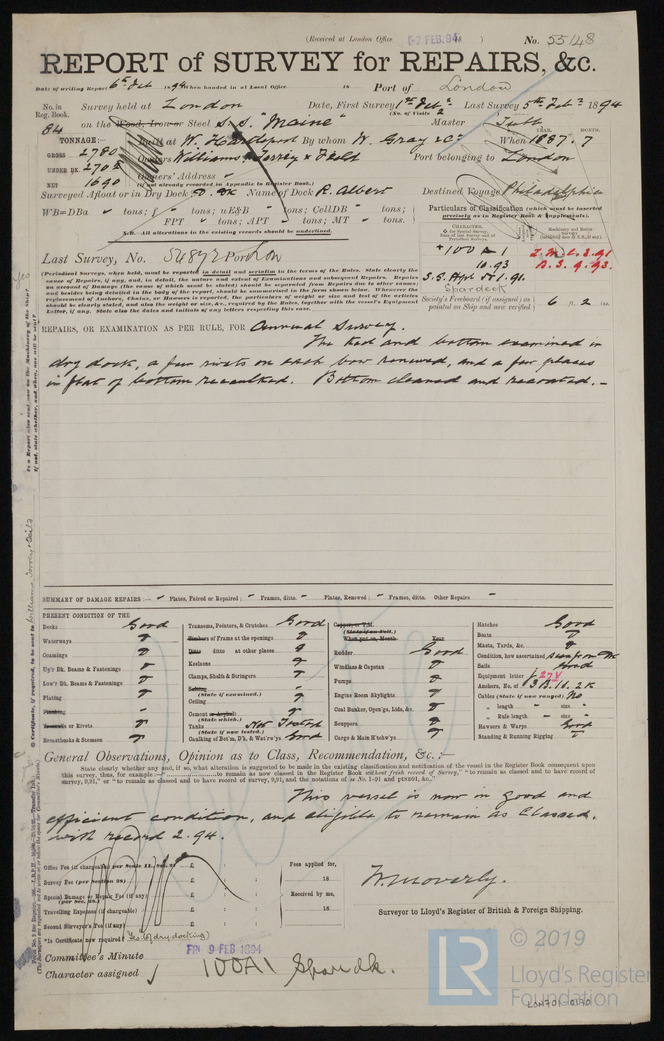 (Received at London Office 7 FEB. 94 )
No. 55148
REPORT of SURVEY for REPAIRS, &c.
Date of writing Report 6th Feb 1894 When handed in at Local Office 18 Port of London
No. in Reg. Book. Survey held at London Date, First Survey 1st Feb: Last Survey 5th Feb: 1894
(No. of Visits 2
84 on the Wood, Iron or Steel S.S. "Maine" Master
TONNAGE: Built at W. Hartlepool By whom W. Gray & Co When 1887. 7
YEAR. MONTH.
GROSS 2780
Owners Williams Torrey & Feild Port belonging to London
UNDER DK.
NET 1690 Owners' Address
(if not already recorded in Appendix to Register Book.)
Surveyed Afloat or in Dry Dock D. Dk Name of Dock R. Albert Destined Voyage Philadelphia
WB=DBa tons; f tons; uE&B tons; CellDB tons;
FPT tons; APT tons; MT tons;
N.B. All alterations in the existing records should be underlined.
Particulars of Classification (which must be inserted precisely as in Register Book & Supplements).
Last Survey, No. 54892 Port Lon
+100 A 1
10.93
S.S. No 1.91.
Spardeck
L.M.C. 3.91
B.S. 9.93
Society's Freeboard (if assigned) as painted on Ship and now verified 6 ft. 2 ins.
(Periodical Surveys, when held, must be reported in detail and seriatim in the terms of the Rules. State clearly the
cause of Repairs, if any, and, in detail, the nature and extent of Examinations and subsequent Repairs. Repairs
on account of Damage (the cause of which must be stated) should be separated from Repairs due to other causes;
and besides being detailed in the body of the report, should be summarised in the form shown below. Wherever the
replacement of Anchors, Chains, or Hawsers is reported, the particulars of weight or size and test of the articles
should be clearly stated, and also the weight or size, &c., required by the Rules, together with the vessel's Equipment
Letter, if any. State also the dates and initials of any letters respecting this case.
REPAIRS, OR EXAMINATION AS PER RULE, FOR Annual Survey.
The keel and bottom examined in
dry dock, a few rivets on each bow renewed, and a few places
in flat of bottom recaulked. Bottom cleaned and recoated.
SUMMARY OF DAMAGE REPAIRS:— Plates, Faired or Repaired; Frames, ditto. Plates, Renewed; Frames, ditto. Other Repairs
PRESENT CONDITION OF THE
Decks Good
Waterways
Coamings
Up'r Dk. Beams & Fastenings
Low'r Dk. Beams & Fastenings
Plating
Planking
Treenails or Rivets
Breasthooks & Stemson
Transoms, Pointers, & Crutches Good
Timbers of Frame at the openings
Ditto ditto at other places
Keelsons
Clamps, Shelfs & Stringers
Salting (State if examined.)
Ceiling
Cement or Asphalt (State which.)
Tanks Not Tested (State if now tested.)
Caulking of Bot'm, D'k, & Wat'rw'ys Good
Copper, or Y.M. (State if on Felt.)
When put on, Month Year
Rudder Good
Windlass & Capstan
Pumps
Engine Room Skylights
Coal Bunker, Open'gs, Lids, &c.
Scuppers
Cargo & Main H'tchw'ys
Hatches Good
Boats
Masts, Yards, &c.
Condition, how ascertained
Sails Good
Equipment letter
Anchors, No. of 3 B. 1 S. 2 K
Cables (State if now ranged) No
" length " size
" Rule length " size
Hawsers & Warps Good
Standing & Running Rigging
General Observations, Opinion as to Class, Recommendation, &c.:—
State clearly whether any, and if so, what alteration is suggested to be made in the existing classification and notification of the vessel in the Register Book consequent upon
this survey, thus, for example:—" to remain as now classed in the Register Book without fresh record of Survey," "to remain as classed and to have record of
survey, 9,91," or "to remain as classed and to have record of survey, 9,91, and the notations of ss No. 1–91 and ptnb91, &c."
This vessel is now in good and
efficient condition, and eligible to remain as Classed,
with record 2.94.
Office Fee (if chargeable) per Scale II., Sec. £
Survey Fee (per Section 28) £
Special Damage or Repair Fee (if any) (per Sec. 28.) £
Travelling Expenses (if chargeable) £
Second Surveyor's Fee (if any) £
Fees applied for, 18
Received by me, 18
Surveyor to Lloyd's Register of British & Foreign Shipping.
*Is Certificate now required? (of drydocking)
Committee's Minute FRI 9 FEB 1894
Character assigned 100A1 Spar dk.
LR © 2019
Lloyd's Register
Foundation
LON701-0190